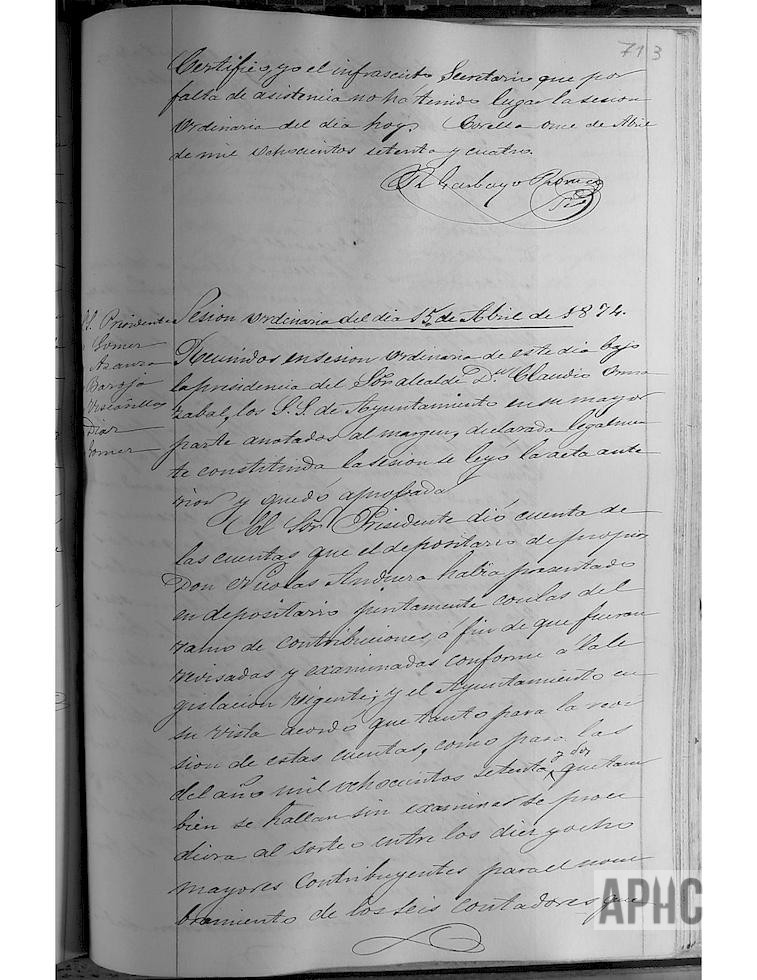 713
Certifico yo el infrascrito Secretario que por
falta de asistencia no ha tenido lugar la sesion
ordinaria del dia hoy. Corella once de Abril
de mil ochocientos setenta y cuatro.
Garbayo
Sesion ordinaria del dia 15 de Abril de 1874.
S.S. Presidente
Gomez
Azanza
Baroja
Virto
Diaz
Gomez
Reunidos en sesion ordinaria de este dia bajo
la presidencia del Sõr alcalde D.n Claudio Orma
zabal, los S.S. de Ayuntamiento en su mayor
parte anotados al margen, declarada legalmen
te constituida la sesion se leyo la acta ante
rior y quedó aprobada
El Sõr Presidente dió cuenta de
las cuentas que el depositario de propios
Don Nicolas Andueza habia presentado
en depositario juntamente con las del
ramo de contribuciones, á fin de que fueran
revisadas y examinadas conforme á la le
gislacion vigente; y el Ayuntamiento en
su vista acordó que tanto para la revi
sion de estas cuentas, como para las
del año mil ochocientos setenta y dos que tam
bien se hallan sin examinar se proce
diera al sorteo entre los diez y ocho
mayores contribuyentes para el nom
bramiento de los seis contadores que
APHC